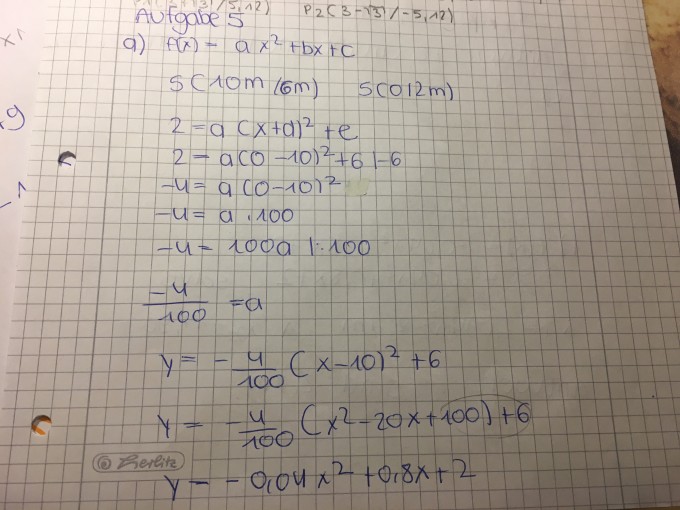 P2(3-√3)/-5,12)
Aufgabe 5
a) f(x) = ax²+bx+c
S(10m/6m) S(0/2m)
2 = a(x+d)²+e
2 = a(0-10)²+6 |-6
-4 = a(0-10)²
-4 = a·100
-4 = 100a |:100
-4/100 = a
y = -4/100 (x-10)²+6
y = -4/100 (x²-20x+100)+6
© Zerlitz
y = -0,04x²+0,8x+2